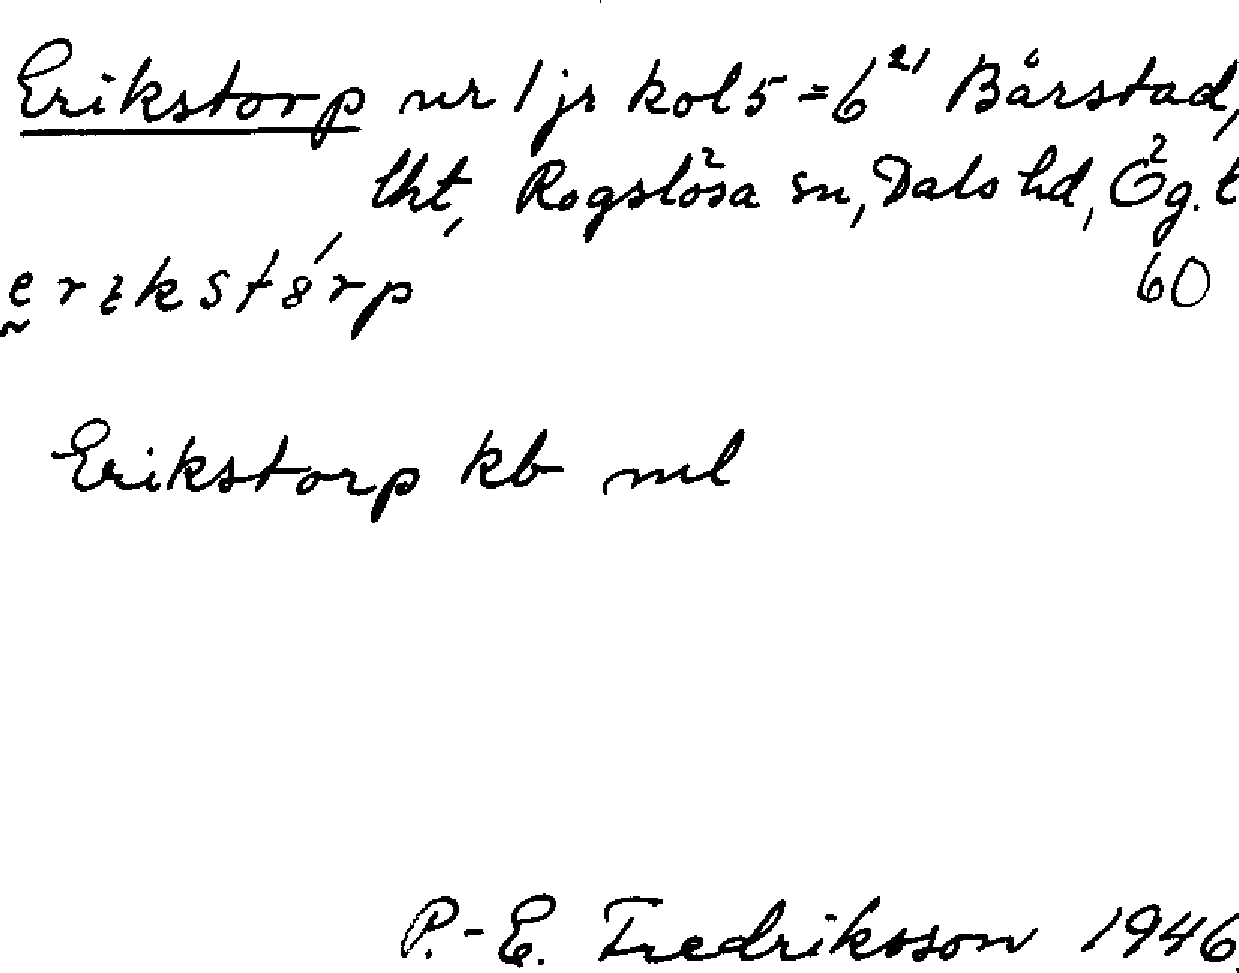 Erikstorp nr 1 js kol 5 = 6²¹ Bårstad,
lht, Rogslösa sn, Dals hd, Ög. l
60
Erikstorp kb ml
P.-E. Fredriksson 1946